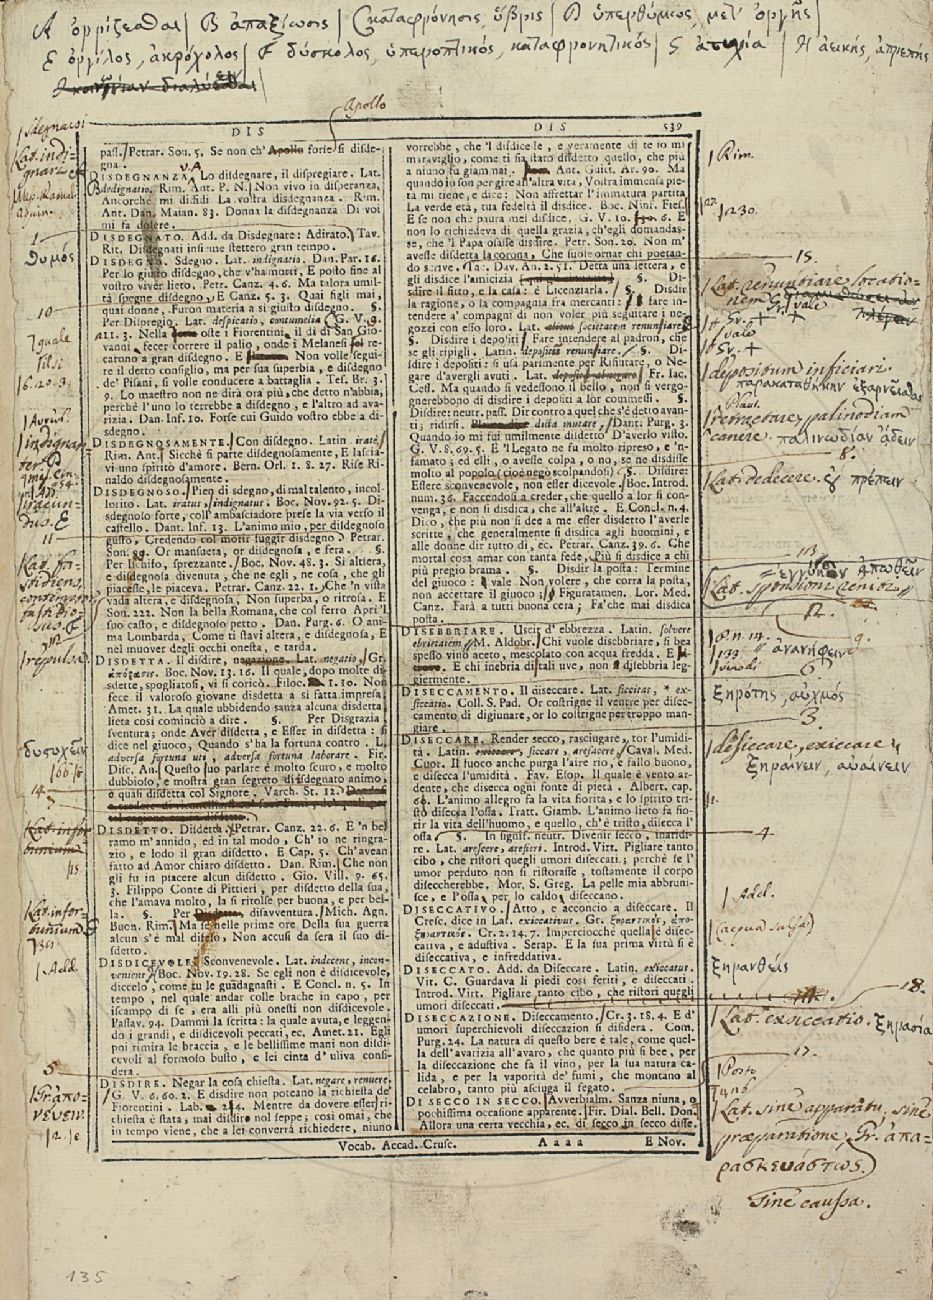 Α ὀργίζεσθαι | Β ἀπαξίωσις | C καταφρόνησις, ὕβρις | D ὑπερθύμως, μετ' ὀργῆς |
Ε ὀργίλος, ἀκρόχολος | F δύσκολος, ὑπεροπτικός, καταφρονητικός | G ἀτυχία | H ἀεικής, ἀπρεπής
Apollo
DIS
pass. Petrar. Son. 5. Se non ch' Apollo forse si disde-
gna.
DISDEGNANZA. Lo disdegnare, il dispregiare. Lat.
dedignatio. Rim. Ant. P. N. Non vivo in disperanza,
Ancorchè mi disfidi La vostra disdegnanza. Rim.
Ant. Dan. Maian. 83. Donna la disdegnanza Di voi
mi fa dolere.
DISDEGNATO. Add. da Disdegnare: Adirato. Tav.
Rit. Disdegnati insieme stettero gran tempo.
DISDEGNO. Sdegno. Lat. indignatio. Dan. Par. 16.
Per lo giusto disdegno, che v'ha morti, E posto fine al
vostro viver lieto. Petr. Canz. 4. 6. Ma talora umil-
tà spegne disdegno, E Canz. 5. 3. Quai figli mai,
quai donne, Furon materia a sì giusto disdegno. §.
Per Dispregio. Lat. despicatio, contumelia G. V. 9.
211. 3. Nella oste i Fiorentini, il dì di San Gio-
vanni, fecer correre il palio, onde i Melanesi il re-
carono a gran disdegno. E Non volle segui-
re il detto consiglio, ma per sua superbia, e disdegno
de' Pisani, si volle conducere a battaglia. Tes. Br. 3.
9. Lo maestro non ne dirà ora più, che detto n'abbia,
perchè l'uno lo terrebbe a disdegno, e l'altro ad ava-
rizia. Dan. Inf. 10. Forse cui Guido vostro ebbe a di-
sdegno.
DISDEGNOSAMENTE. Con disdegno. Latin. iratè.
Rim. Ant. Sicchè si parte disdegnosamente, E lascia-
vi uno spirito d'amore. Bern. Orl. 1. 8. 27. Rise Ri-
naldo disdegnosamente.
DISDEGNOSO. Pien di sdegno, di mal talento, incol-
lorito. Lat. iratus, indignatus. Boc. Nov. 92. 5. Di-
sdegnolo forte, coll'ambasciadore prese la via verso il
castello. Dant. Inf. 13. L'animo mio, per disdegnoso
gusto, Credendo col morir fuggir disdegno. Petrar.
Son. Or mansueta, or disdegnosa, e fera. §.
Per Ischifo, sprezzante. Boc. Nov. 48. 3. Sì altiera,
e disdegnosa divenuta, che ne egli, ne cosa, che gli
piacesse, le piaceva. Petrar. Canz. 22. 1. Che 'n vista
vada altera, e disdegnosa, Non superba, o ritrosa. E
Son. 222. Non la bella Romana, che col ferro Aprì 'l
suo casto, e disdegnoso petto. Dan. Purg. 6. O ani-
ma Lombarda, Come ti stavi altera, e disdegnosa, E
nel muover degli occhi onesta, e tarda.
DISDETTA. Il disdire, nagazione. Lat. negatio, Gr.
ἀπόφασις. Boc. Nov. 13. 16. Il quale, dopo molte di-
sdette, spogliatosi, vi si coricò. Filoc. 1. 10. Non
fece il valoroso giovane disdetta a sì fatta impresa.
Amet. 31. La quale ubbidendo sanza alcuna disdetta
lieta così cominciò a dire. §. Per Disgrazia
sventura; onde Aver disdetta, e Esser in disdetta: si
dice nel giuoco, Quando s'ha la fortuna contro. L.
adversa fortuna uti, adversa fortuna laborare. Fir.
Disc. An. Questo suo parlare è molto scuro, e molto
dubbioso, e mostra gran segreto di disdegnato animo,
e quasi disdetta col Signore. Varch. St. 12.
DISDETTO. Disdetta. Petrar. Canz. 22. 6. E 'n bel
ramo m'annido, ed in tal modo, Ch' io ne ringra-
zio, e lodo il gran disdetto. E Cap. 5. Ch'avean
fatto ad Amor chiaro disdetto. Dan. Rim. Che non
gli fu in piacere alcun disdetto. Gio. Vill. 9. 65.
3. Filippo Conte di Pittieri, per disdetto della sua,
che l'amava molto, la si ritolse per buona, e per bel-
la. §. Per disavventura. Mich. Agn.
Buon. Rim. Ma se nelle prime ore Della sua guerra
alcun s'è mal difeso, Non accusi da sera il suo di-
sdetto.
DISDICEVOLE. Sconvenevole. Lat. indecens, incon-
veniens. Boc. Nov. 19. 28. Se egli non è disdicevole,
diccelo, come tu le guadagnasti. E Concl. n. 5. In
tempo, nel quale andar colle brache in capo, per
iscampo di se, era alli più onesti non disdicevole.
Passav. 94. Dammi la scritta: la quale avuta, e leggen-
do i grandi, e disdicevoli peccati, ec. Amet. 21. Egli
poi rimira le braccia, e le bellissime mani non disdi-
cevoli al formoso busto, e lei cinta d'uliva consi-
dera.
DISDIRE. Negar la cosa chiesta. Lat. negare, renuere.
G. V. 6. 60. 2. E disdire non poteano la richiesta de'
Fiorentini. Lab. 2 4. Mentre da dovere esser ri-
chiesta è stata, mai disdire nol seppe; così omai, che
in tempo viene, che a lei converrà richiedere, niuno
DIS 539
vorrebbe, che 'l disdicesse, e veramente di te io mi
miraviglio, come ti sia stato disdetto quello, che più
a niuno fu giammai. Ant. Guitt. Ar. 90. Ma
quando io son per gire all'altra vita, Vostra immensa pie-
tà mi tiene, e dice: Non affrettar l'immatura partita
La verde età, tua fedeltà il disdice. Boc. Ninf. Fies.
E se non che paura mel disdice, G. V. 10. 6. E
non lo richiedeva di quella grazia, ch'egli domandas-
se, che 'l Papa osasse disdire. Petr. Son. 20. Non m'
avesse disdetta la corona, Che suole ornar chi poetan-
do scrive. Tac. Dav. An. 2. 51. Detta una lettera, e
gli disdice l'amicizia §. Di-
sdire il fitto, e la casa: è Licenziarla. §. Disdir
la ragione, o la compagnia fra mercanti: fare in-
tendere a' compagni di non voler più seguitare i ne-
gozzi con esso loro. Lat. societatem renunsiare
§. Disdire i depositi. Fare intendere al padron, che
se gli ripigli. Latin. deposita renunsiare. §. Di-
sdire i depositi: si usa parimente per Rifiutare, o Ne-
gare d'avergli avuti. Lat. Fr. Iac.
Cess. Ma quando si vedessono il bello, non si vergo-
gnerebbono di disdire i depositi a lor commessi. §.
Disdire: neutr. pass. Dir contro a quel che s'è detto avan-
ti; ridirsi. dicta mutare, Dant. Purg. 3.
Quando io mi fui umilmente disdetto D'averlo visto.
G. V. 8. 69. 5. E 'l Legato ne fu molto ripreso, e 'n-
famato; ed elli, o avesse colpa, o no, se ne disdisse
molto al popolo (cioè negò scolpandosi). §. Disdire:
Essere sconvenevole, non esser dicevole. Boc. Introd.
num. 36. Faccendosi a creder, che quello a lor si con-
venga, e non si disdica, che all'altre. E Concl. n. 4.
Dico, che più non si dee a me esser disdetto l'averle
scritte, che generalmente si disdica agli huomini, e
alle donne dir tutto dì, ec. Petrar. Canz. 39. 6. Che
mortal cosa amar con tanta fede, Più si disdice a chi
più pregio brama. §. Disdir la posta: Termine
del giuoco: vale Non volere, che corra la posta;
non accettare il giuoco; Figuratamen. Lor. Med.
Canz. Farà a tutti buona cera; Fa'che mai disdica
posta.
DISEBBRIARE. Uscir d' ebbrezza. Latin. solvere
ebrietatem. M. Aldobr. Chi vuole disebbriare, si bea
spesso vino aceto, mescolato con acqua fredda. E
E chi inebria di tali uve, non disebbria leg-
giermente.
DISECCAMENTO. Il diseccare. Lat. siccitas, * ex-
siccatio. Coll. S. Pad. Or costrigne il ventre per disec-
camento di digiunare, or lo costrigne per troppo man-
giare.
DISECCARE. Render secco, rasciugare, tor l'umidi-
tà. Latin. siccare, arefacere. Caval. Med.
Cuor. Il fuoco anche purga l'aire rio, e fallo buono,
e disecca l'umidità. Fav. Esop. Il quale è vento ar-
dente, che disecca ogni fonte di pietà. Albert. cap.
60. L'animo allegro fa la vita fiorita, e lo spirito tri-
sto disecca l'ossa. Tratt. Giamb. L'animo lieto fa fio-
rir la vita dell'huomo, e quello, ch'è tristo, disecca l'
ossa. §. In signif. neutr. Divenir secco, inaridi-
re. Lat. arescere, arefieri. Introd. Virt. Pigliare tanto
cibo, che ristori quegli umori diseccati; perchè se l'
umor perduto non si ristorasse, tostamente il corpo
diseccherebbe. Mor. S. Greg. La pelle mia abbruni-
sce, e l'ossa per lo caldo diseccano.
DISECCATIVO. Atto, e acconcio a diseccare. Il
Cresc. dice in Lat. exiccativus. Gr. ξηραντικὸς, ἀπο-
ξηραντικός. Cr. 2. 14. 7. Imperciocchè quella è disec-
cativa, e adustiva. Serap. E la sua prima virtù si è
diseccativa, e infreddativa.
DISECCATO. Add. da Diseccare. Latin. exiccatus.
Vit. C. Guardava li piedi così feriti, e diseccati.
Introd. Virt. Pigliare tanto cibo, che ristori quegli
umori diseccati.
DISECCAZIONE. Diseccamento. Cr. 3. 18. 4. E d'
umori superchievoli diseccazion si disidera. Com.
Purg. 24. La natura di questo bere è tale, come quel-
la dell'avarizia all'avaro, che quanto più si bee, per
la diseccazione che fa il vino, per la sua natura ca-
lida, e per la vaporità de' fumi, che montano al
celabro, tanto più asciuga il fegato.
DI SECCO IN SECCO. Avverbialm. Sanza niuna, o
pochissima occasione apparente. Fir. Dial. Bell. Don.
Allora una certa vecchia, ec. di secco in secco disse.
Vocab. Accad. Crusc. A a a a E Nov.
Sdegnarsi
Lat. indi-
gnari
1
θυμός
10
11
repulsa
δυσχεῖν
14
Lat. infor-
tunium
Add.
5
Gr. ἀπο-
νεύειν
Rim.
1230.
15.
Lat. renuntiare locatio-
nem
depositum inficiari
παρακαταθήκην ἐξαρνεῖσθαι
Plaut.
retractare, palinodiam
canere. παλινῳδίαν ᾄδειν
8.
Lat. dedecere. οὐ πρέπειν
12.
ἀνανήφειν
9.
6
ξηρότης, αὐχμός
3
desiccare, exiccare
ξηραίνειν, αὐαίνειν
4
Adel.
(acqua salsa)
ξηρανθείς
18.
Lat. exsiccatio. ξηρασία
17.
Posto
Lat. sine apparatu, sine
præparatione, Gr. ἀπα-
ρασκευάστως.
Sine caussa.
135